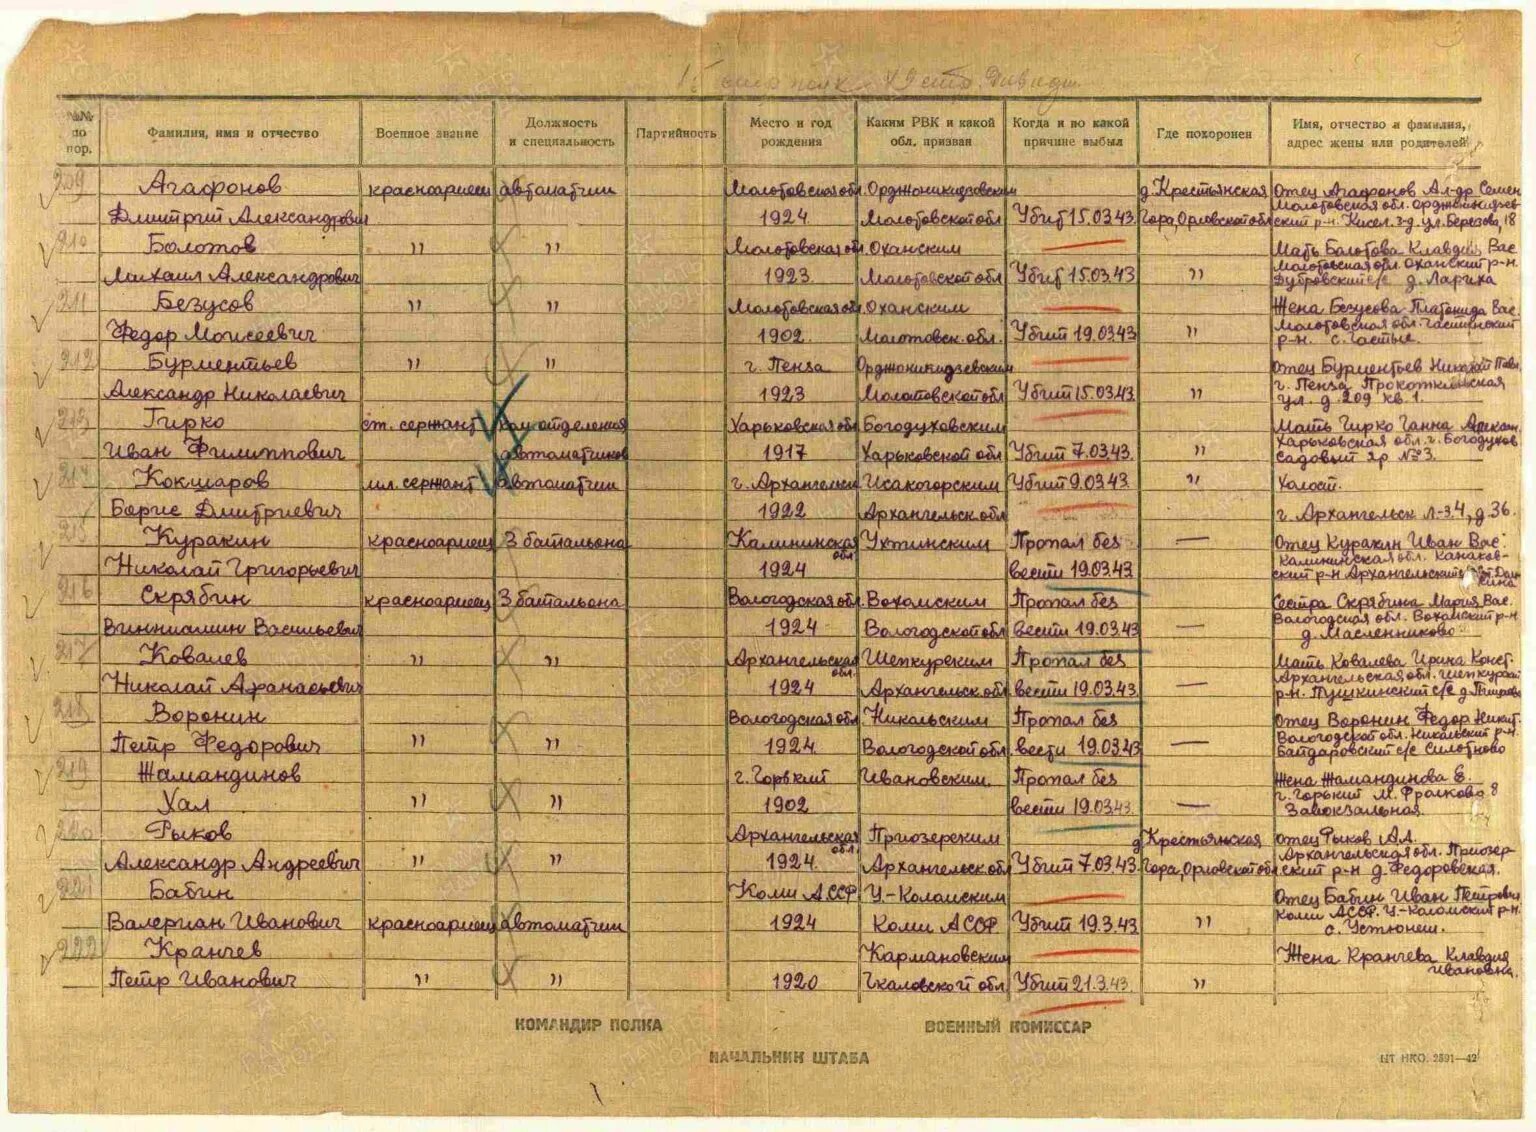 стр. полк 19 стр. Дивизи
№№ по пор. Фамилия, имя и отчество Военное звание Должность и специальность Партийность Место и год рождения Каким РВК и какой обл. призван Когда и по какой причине выбыл Где похоронен Имя, отчество и фамилия, адрес жены или родителей
209 Агафонов красноармеец автоматчик Молотовская обл. Орджоникидзевским д. Крестьянская Отец Агафонов Ал-др Семен
Дмитрий Александрович 1924 Молотовской обл Убит 15.03.43 Гора, Орловской обл Молотовская обл. Орджоникидзевский р-н. Кисел. з-д. ул. Березова, 18
210 Болотов " " Молотовская обл Оханским Мать Болотова Клавдия Вас.
Михаил Александрович 1923 Молотовской обл Убит 15.03.43 " Молотовская обл. Оханский р-н Дубровский с/с д. Лариха
211 Безусов " " Молотовская обл Оханским Жена Безусова Платонида Вас.
Федор Моисеевич 1902 Молотовск. обл. Убит 19.03.43 " Молотовская обл. Частинский р-н. с. Частые.
212 Бурментьев " " г. Пенза Орджоникидзевским Отец Бурментьев Николай Павл.
Александр Николаевич 1923 Молотовской обл Убит 15.03.43 " г. Пенза ул. д. 209 кв. 1.
213 Гирко ст. сержант ком отделения Харьковская обл Богодуховским Мать Гирко Ганна
Иван Филиппович автоматчиков 1917 Харьковской обл Убит 7.03.43. " Харьковская обл. г. Богодухов Садовый яр № 3.
214 Кокшаров мл. сержант автоматчик г. Архангельск Исакогорским Убит 9.03.43. " Холост.
Борис Дмитриевич 1922 Архангельск. обл г. Архангельск Л-з.4, д. 36.
215 Куракин красноармеец 3 батальона Калининская обл Ухтинским Пропал без — Отец Куракин Иван Вас.
Николай Григорьевич 1924 вести 19.03.43. Калининская обл. Конаковский р-н Архангельский
216 Скрябин красноармеец 3 батальона Вологодская обл. Вохомским Пропал без Сестра Скрябина Мария Вас.
Винниамин Васильевич 1924 Вологодской обл вести 19.03.43 — Вологодская обл. Вохомский р-н д. Масленниково
217 Ковалев " " Архангельская обл. Шенкурским Пропал без Мать Ковалева Ирина Конст.
Николай Афанасьевич 1924 Архангельск. обл. вести 19.03.43. — Архангельская обл. Шенкурский р-н. Пушкинский с/с д.
218 Воронин Вологодская обл Никольским Пропал без Отец Воронин Федор Никит.
Петр Федорович " " 1924. Вологодской обл. вести 19.03.43 — Вологодской обл. Никольский р-н. Байдаровский с/с
219 Жамандинов г. Горький Ивановским. Пропал без Жена Жамандинова Е.
Хал " " 1902 вести 19.03.43. — г. Горький Завокзальная.
220 Рыков Архангельская обл. Приозерским д. Крестьянская Отец Рыков А.А.
Александр Андреевич " " 1924. Архангельск. обл Убит 7.03.43. Гора, Орловской обл Архангельская обл. Приозерский р-н д. Федоровская.
221 Бабин Коми АССР У.-Коломским Отец Бабин Иван Петрович
Валериан Иванович красноармеец автоматчик 1924 Коми АССР Убит 19.3.43 " Коми АССР. У-Коломский р-н. с. Устюнеш.
222 Кранчев Кармановским Жена Кранчева Клавдия Ивановна.
Петр Иванович " " 1920 Чкаловской обл Убит 21.3.43. "
КОМАНДИР ПОЛКА ВОЕННЫЙ КОМИССАР
НАЧАЛЬНИК ШТАБА ЦТ НКО. 2591—42